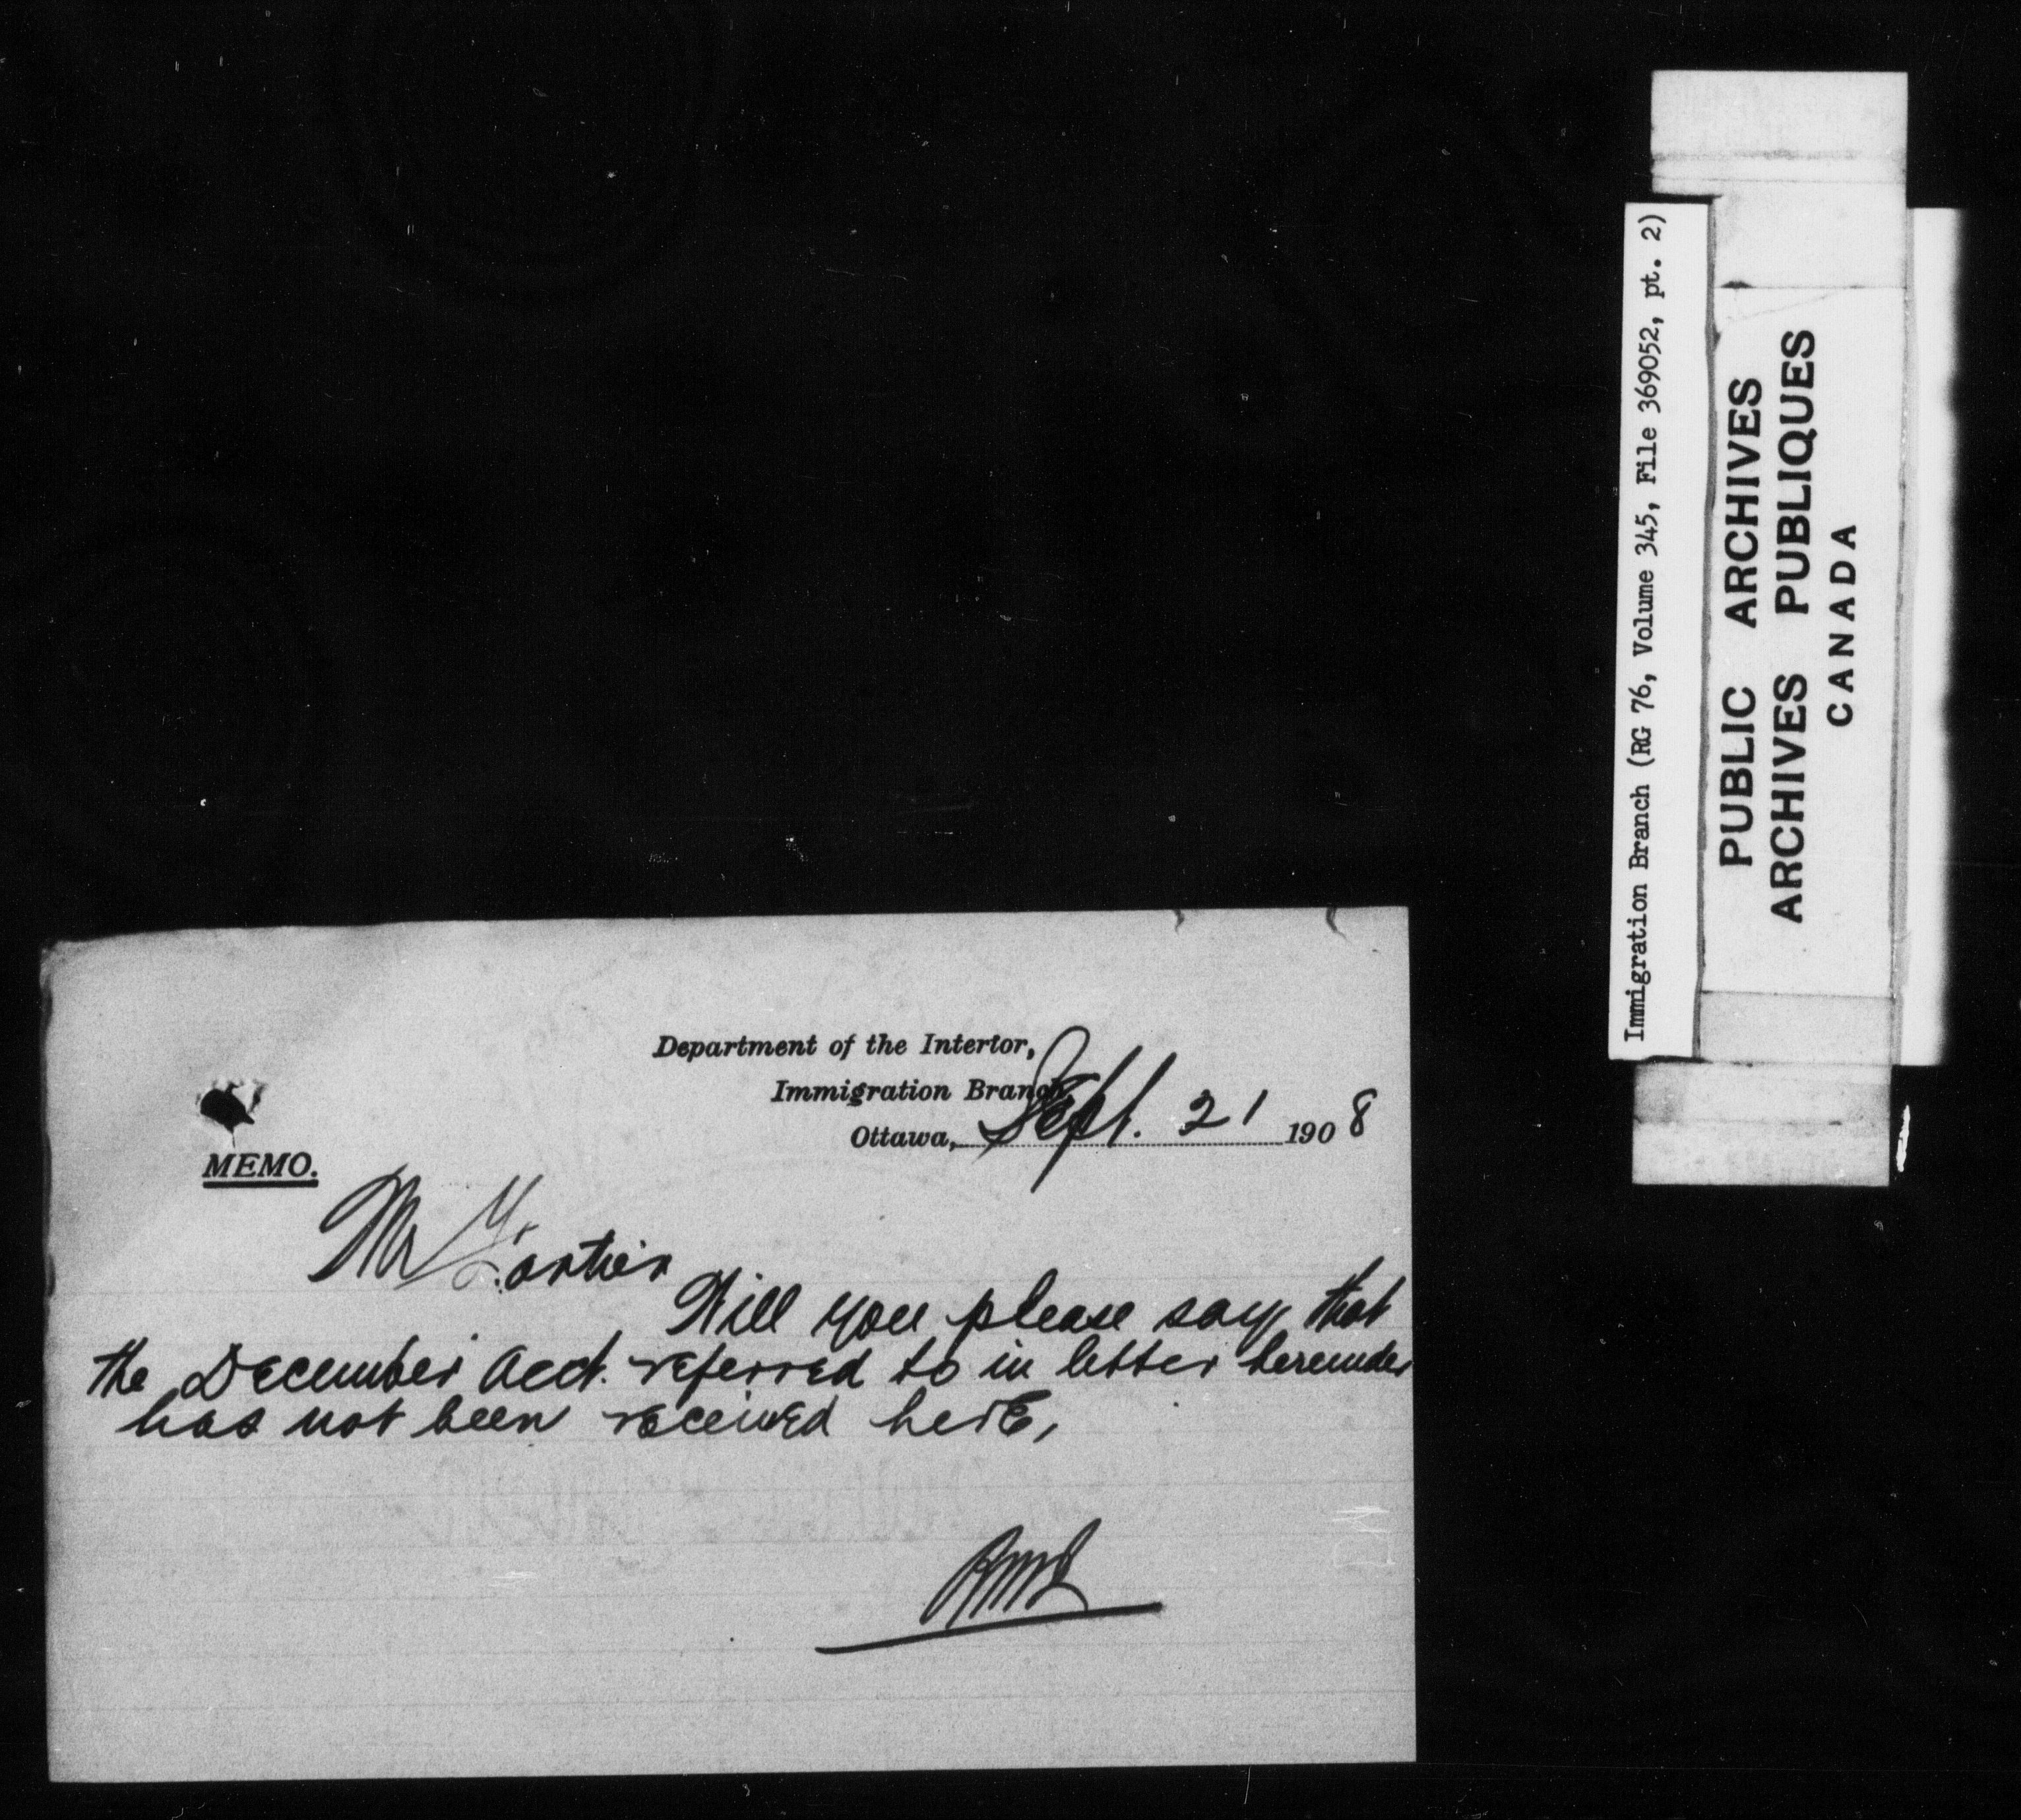 Department of the Interior,
Immigration Branch,
Ottawa, Sept. 21 1908
MEMO.
Mr Fortier
Will you please say that
the December acct. referred to in letter hereunder
has not been received here,
Immigration Branch (RG 76, Volume 345, File 369052, pt. 2)
PUBLIC ARCHIVES
ARCHIVES PUBLIQUES
CANADA